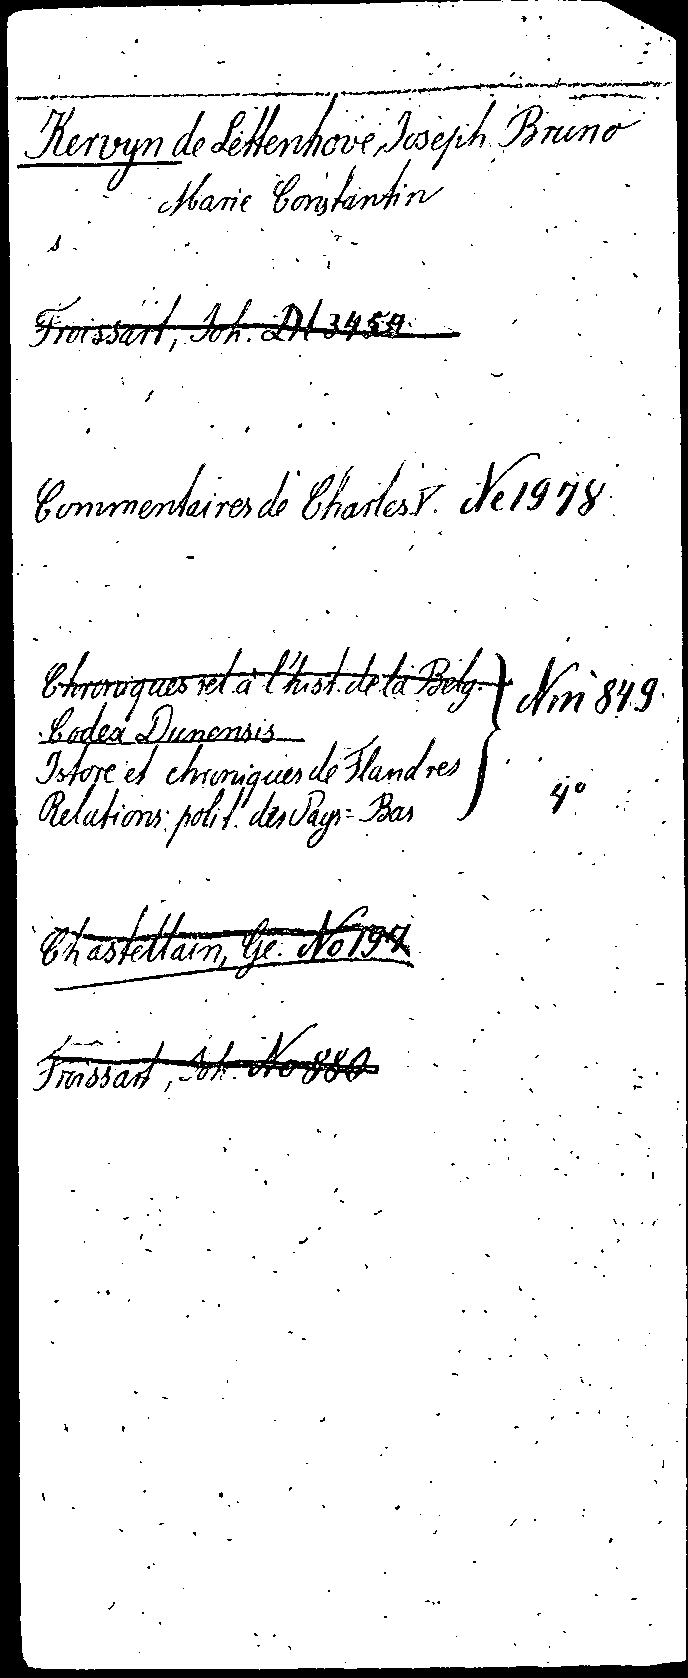 Kervyn de Lettenhove, Joseph Bruno
Marie Constantin
s.
Froissart, Joh. Dl 3454
Commentaires de Charles V. Ne 1978
Chroniques rel. à l'hist. de la Belg.
Nm 849
Codex Dunensis
Istore et chroniques de Flandres
Relations polit. des Pays=Bas
4°
Chastellain, Ge. No 197
Froissart, Joh. No 880